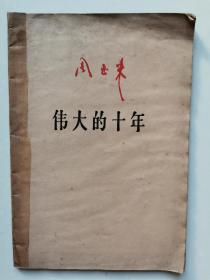 周恩来
伟大的十年